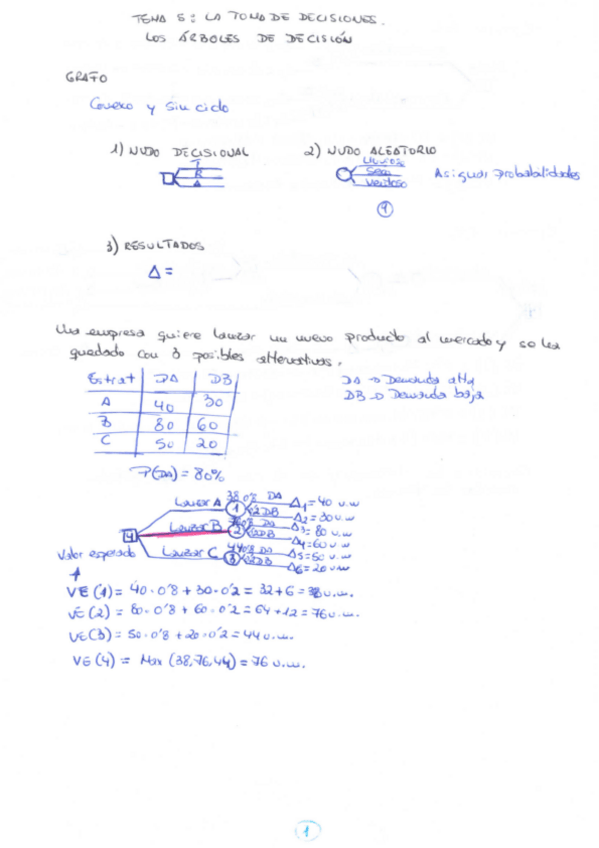 TEMA 5: LA TOMA DE DECISIONES.
LOS ÁRBOLES DE DECISIÓN
GRAFO
Conexo y sin ciclo
1) NUDO DECISIONAL 2) NUDO ALEATORIO
T
R
A
Lluvioso
Seco
Ventoso
Asignar Probabilidades
3) RESULTADOS
Δ =
Una empresa quiere lanzar un nuevo producto al mercado y se ha
quedado con 3 posibles alternativas.
Estrat DA DB
A 40 30
B 80 60
C 50 20
DA → Demanda alta
DB → Demanda baja
P(DA) = 80%
Lanzar A 38 0'8 DA Δ1 = 40 u.m
1 0'2 DB Δ2 = 30 u.m
Lanzar B 76 0'8 DA Δ3 = 80 u.m
2 0'2 DB Δ4 = 60 u.m
Lanzar C 44 0'8 DA Δ5 = 50 u.m
3 0'2 DB Δ6 = 20 u.m
4
Valor esperado
VE (1) = 40 · 0'8 + 30 · 0'2 = 32 + 6 = 38 u.m.
VE (2) = 80 · 0'8 + 60 · 0'2 = 64 + 12 = 76 u.m.
VE (3) = 50 · 0'8 + 20 · 0'2 = 44 u.m.
VE (4) = Max (38, 76, 44) = 76 u.m.
1